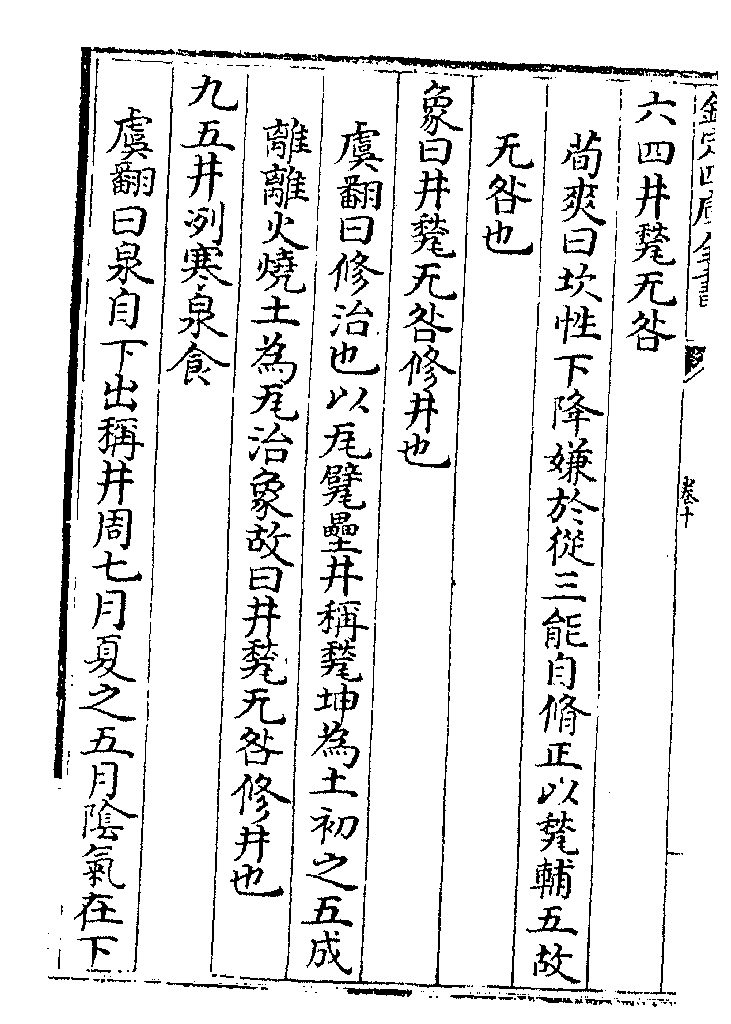 欽定四庫全書
卷十
六四井甃无咎
荀爽曰坎性下降嫌於從三能自脩正以甃輔五故
无咎也
象曰井甃无咎修井也
虞翻曰修治也以瓦甓壘井稱甃坤為土初之五成
離離火燒土為瓦治象故曰井甃无咎修井也
九五井洌寒泉食
虞翻曰泉自下出稱井周七月夏之五月陰氣在下